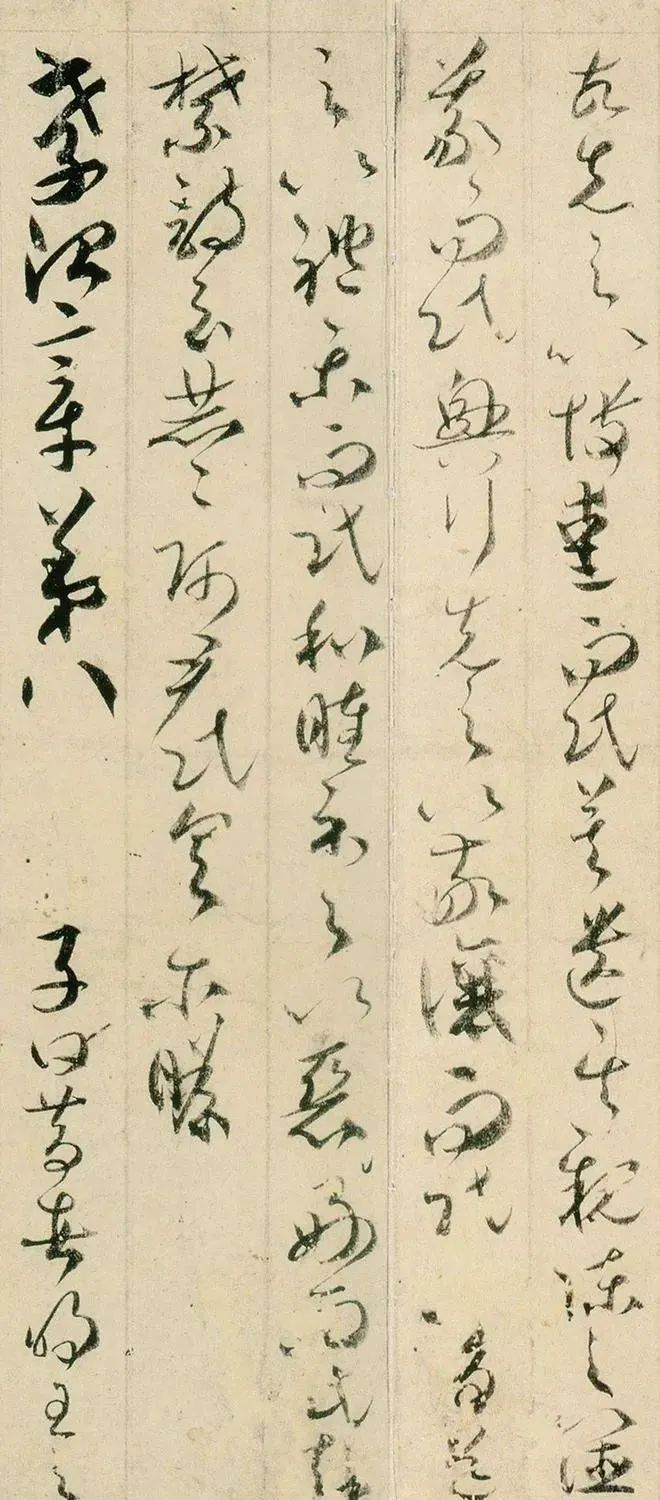 故先之以博愛而民莫遺其親陳之以德
義而民興行先之以敬讓而民不爭道
之以禮樂而民和睦示之以惡好而民知
禁詩云赫〻師尹民具尒瞻
孝治章第八 子曰昔者明王之